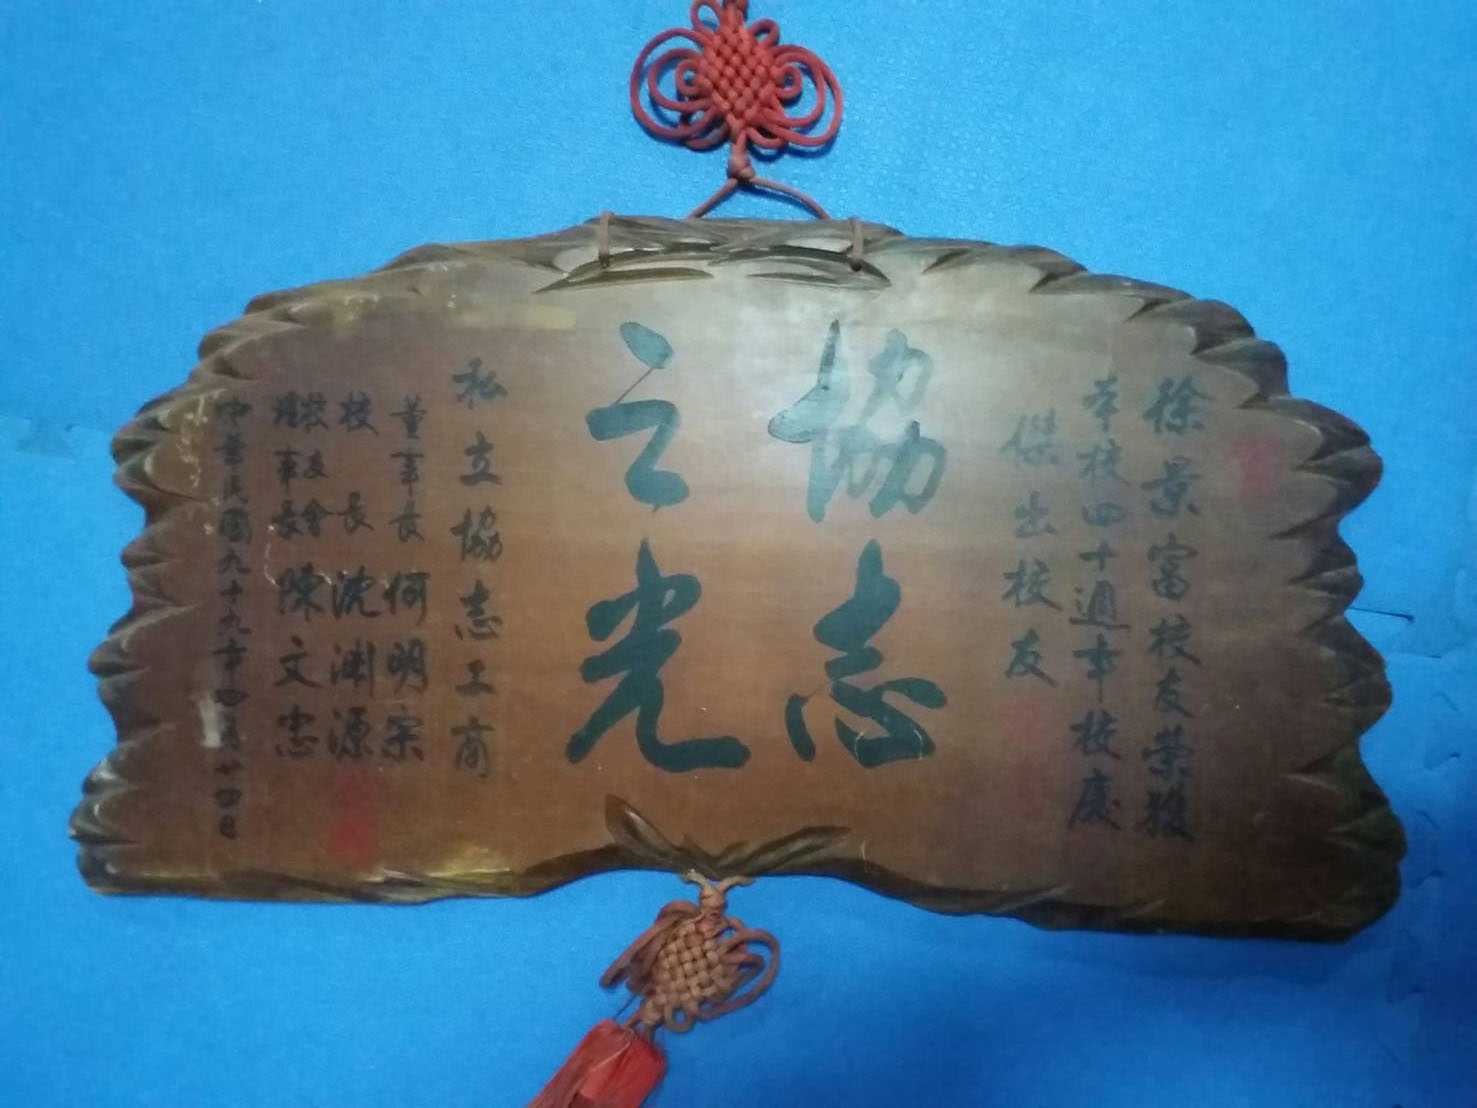 徐景富校友榮獲
本校四十週年校慶
傑出校友
協志
之光
私立協志工商
董事長 何明宗
校長 沈淵源
校友會
理事長 陳文忠
中華民國九十九年四月廿四日